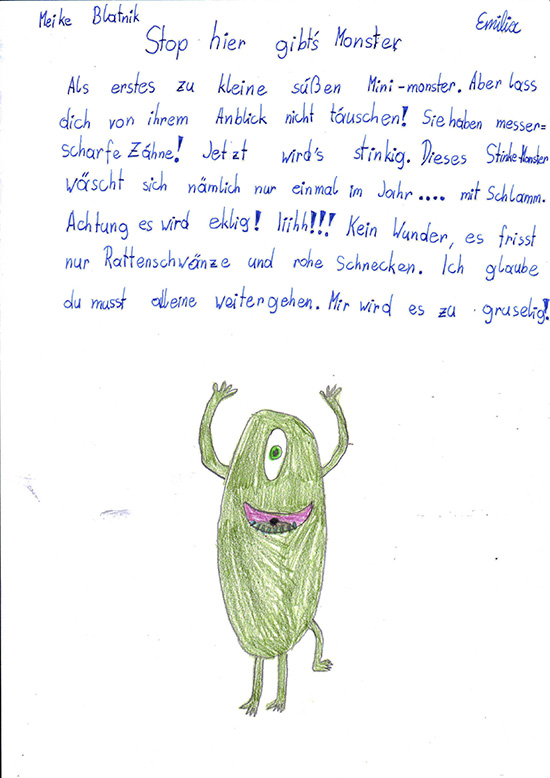 Meike Blatnik
Emilia
Stop hier gibt's Monster
Als erstes zu kleine süßen Mini-monster. Aber lass
dich von ihrem Anblick nicht täuschen! Sie haben messer=
scharfe Zähne! Jetzt wird's stinkig. Dieses Stinke-Monster
wäscht sich nämlich nur einmal im Jahr.... mit Schlamm.
Achtung es wird eklig! Iiihh!!! Kein Wunder, es frisst
nur Rattenschwänze und rohe Schnecken. Ich glaube
du musst alleine weitergehen. Mir wird es zu gruselig!